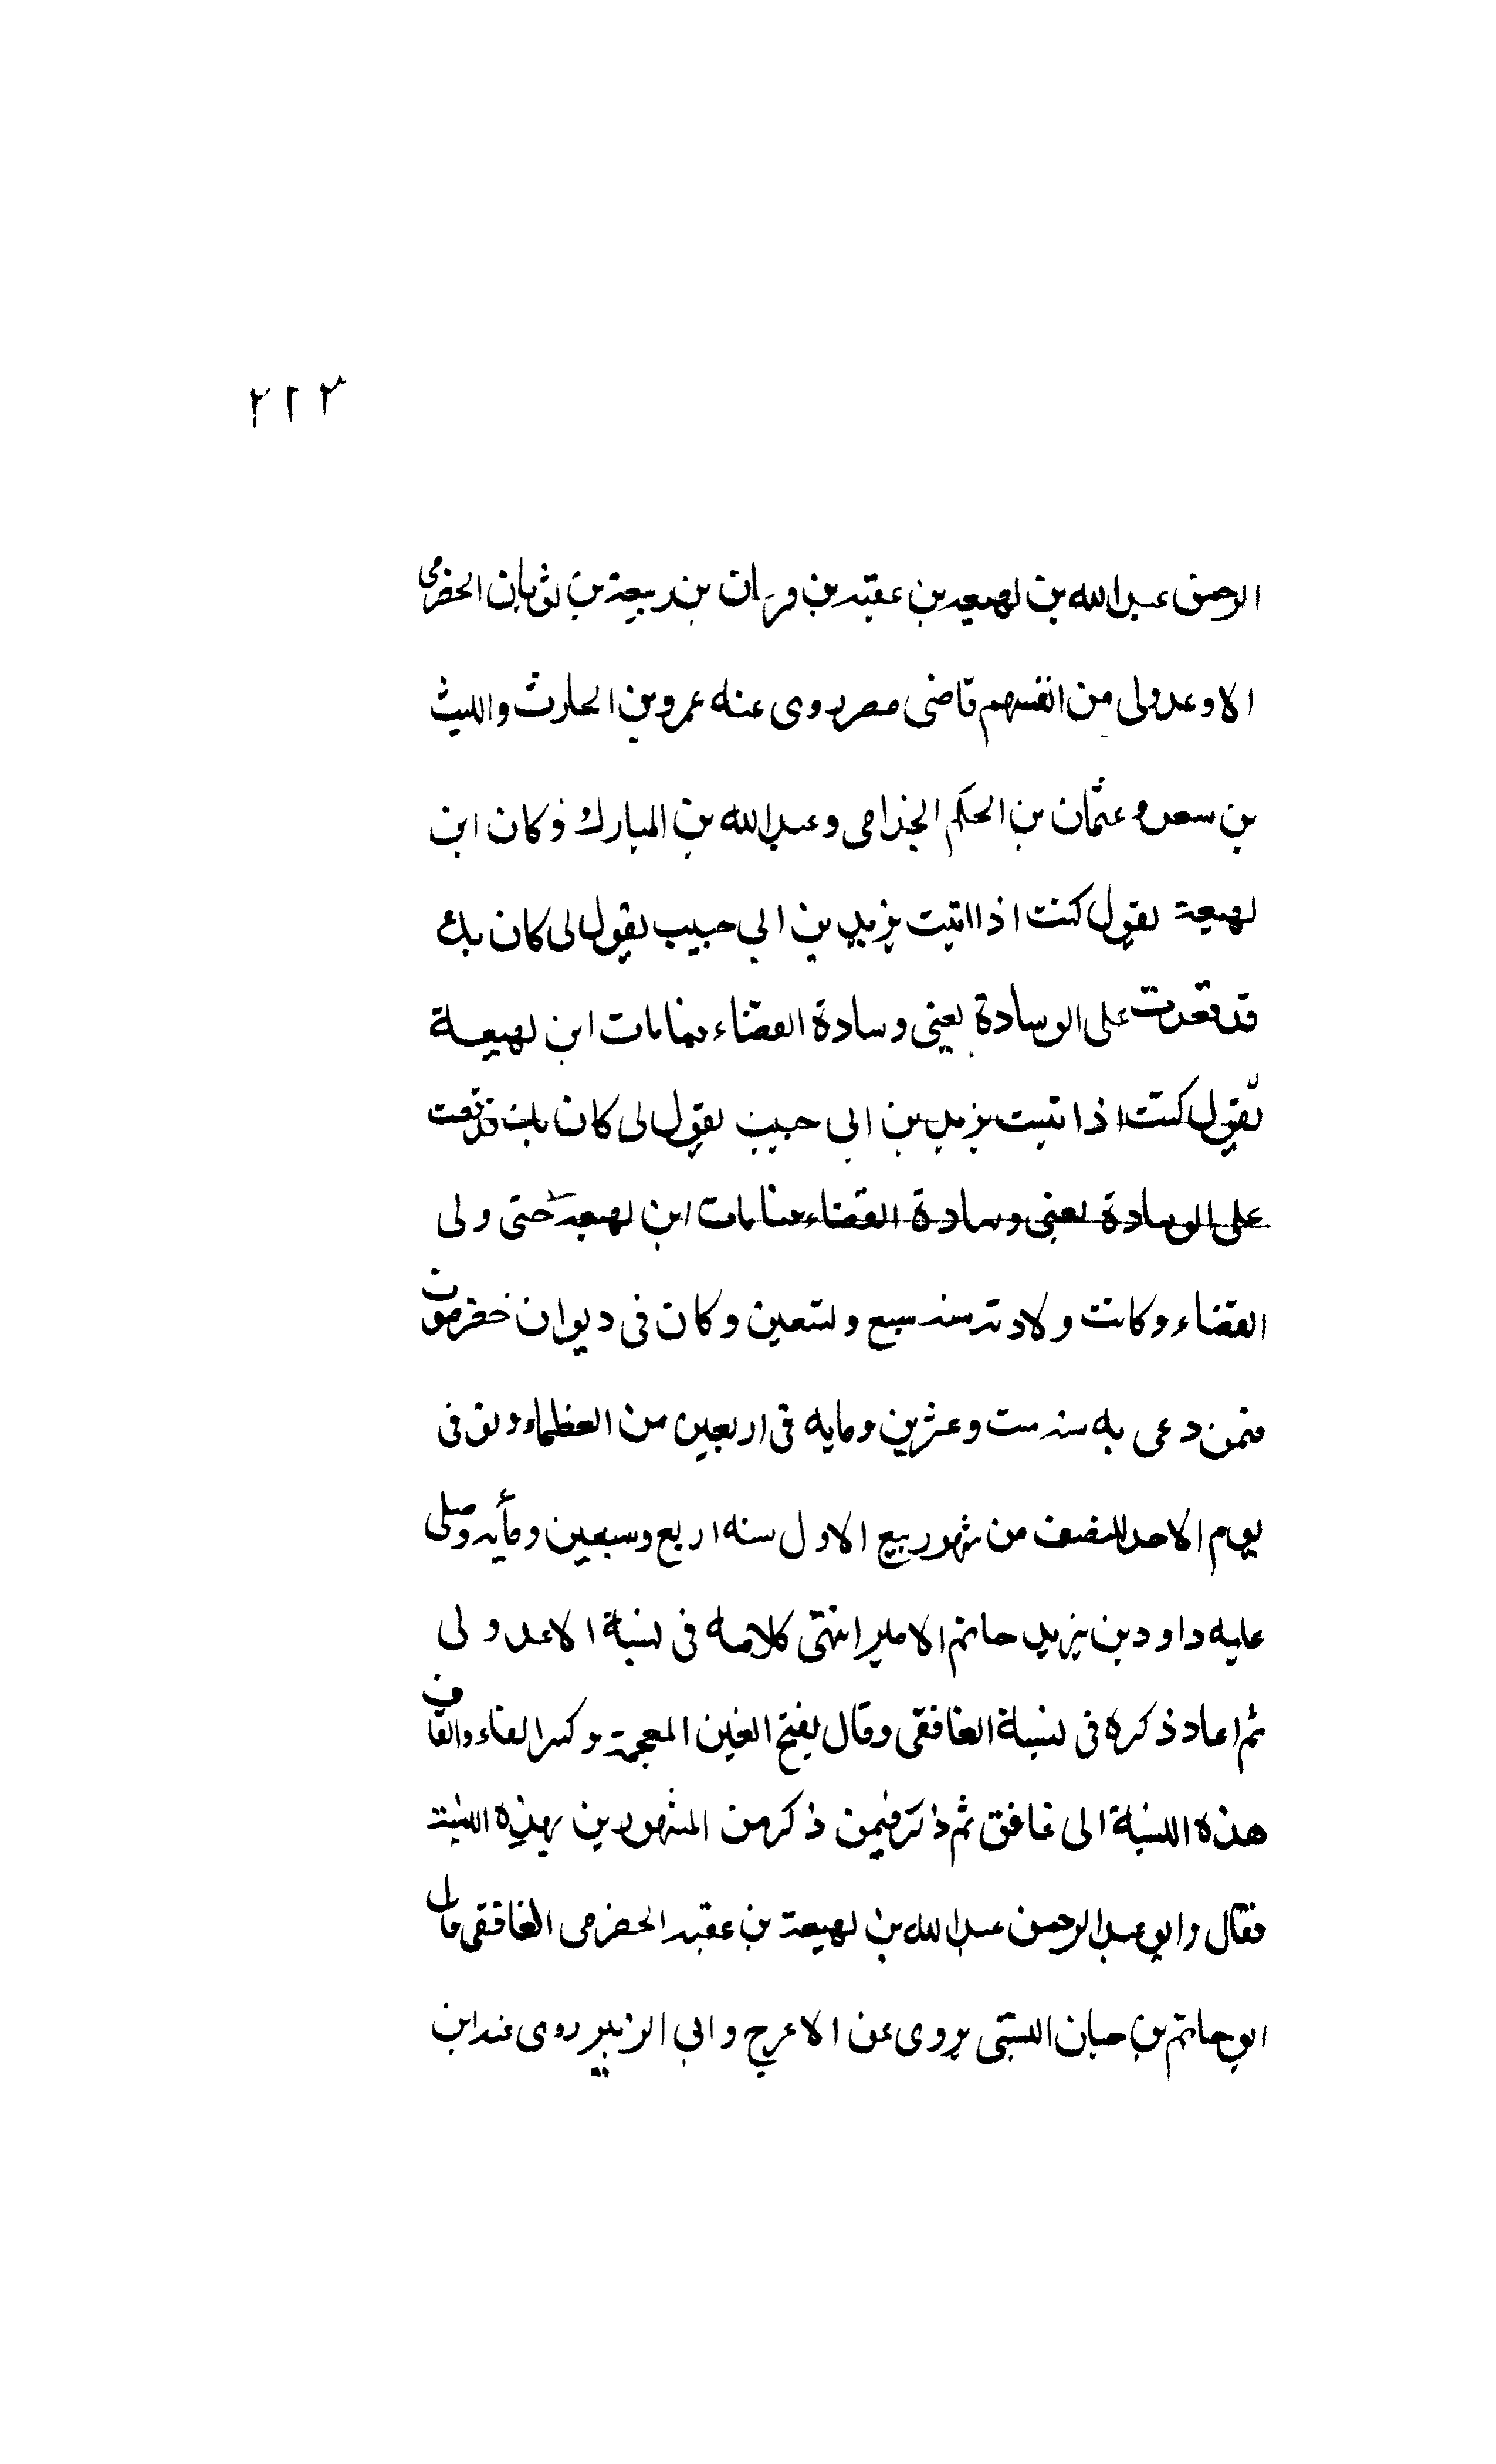 ٢١٢
الرحمن عبد الله بن لهيعه بن عقبه بن فرعان بن ربيعة بن ثوبان الحضرمى
الاوعدولى من انفسهم قاضى مصر روى عنه عمرو بن الحارث والليث
بن سعد و عثمان بن الحكم الجذامى وعبد الله بن المبارك وكان ابن
لهيعة يقول كنت اذا اتيت يزيد بن ابي حبيب يقول لى كان بك
قد قعدت على الوسادة يعنى وسادة القضاء فما مات ابن لهيعة
يقول كنت اذا تيت يزيد بن ابى حبيب يقول لى كان بك قد قعدت
على الوسادة يعنى وسادة القضاء فما مات ابن لهيعه حتى ولى
القضاء وكانت ولادته سنه سبع وتسعين وكان فى ديوان حضرموت
فمن دعى به سنه ست وعشرين ومايه فى اربعين من العظماء وتوفى
يوم الاحد للنصف من شهر ربيع الاول سنه اربع وسبعين ومأيه وصلى
عليه داود بن يزيد حاتم الامير انتهى كلامه فى نسبة الاعدولى
ثم اعاد ذكره فى نسبة الغافقى وقال بفتح الغين المعجمة وكسر الفاء والقاف
هذه النسبة الى غافق ثم ذكر فيمن ذكر من المشهورين بهذه النسبة
فقال وابو عبد الرحمن عبد الله بن لهيعة بن عقبه الحضرمى الغافقى قال
ابو حاتم بن حبان البستى يروى عن الاعرج وابى الزبير روى عنه ابن